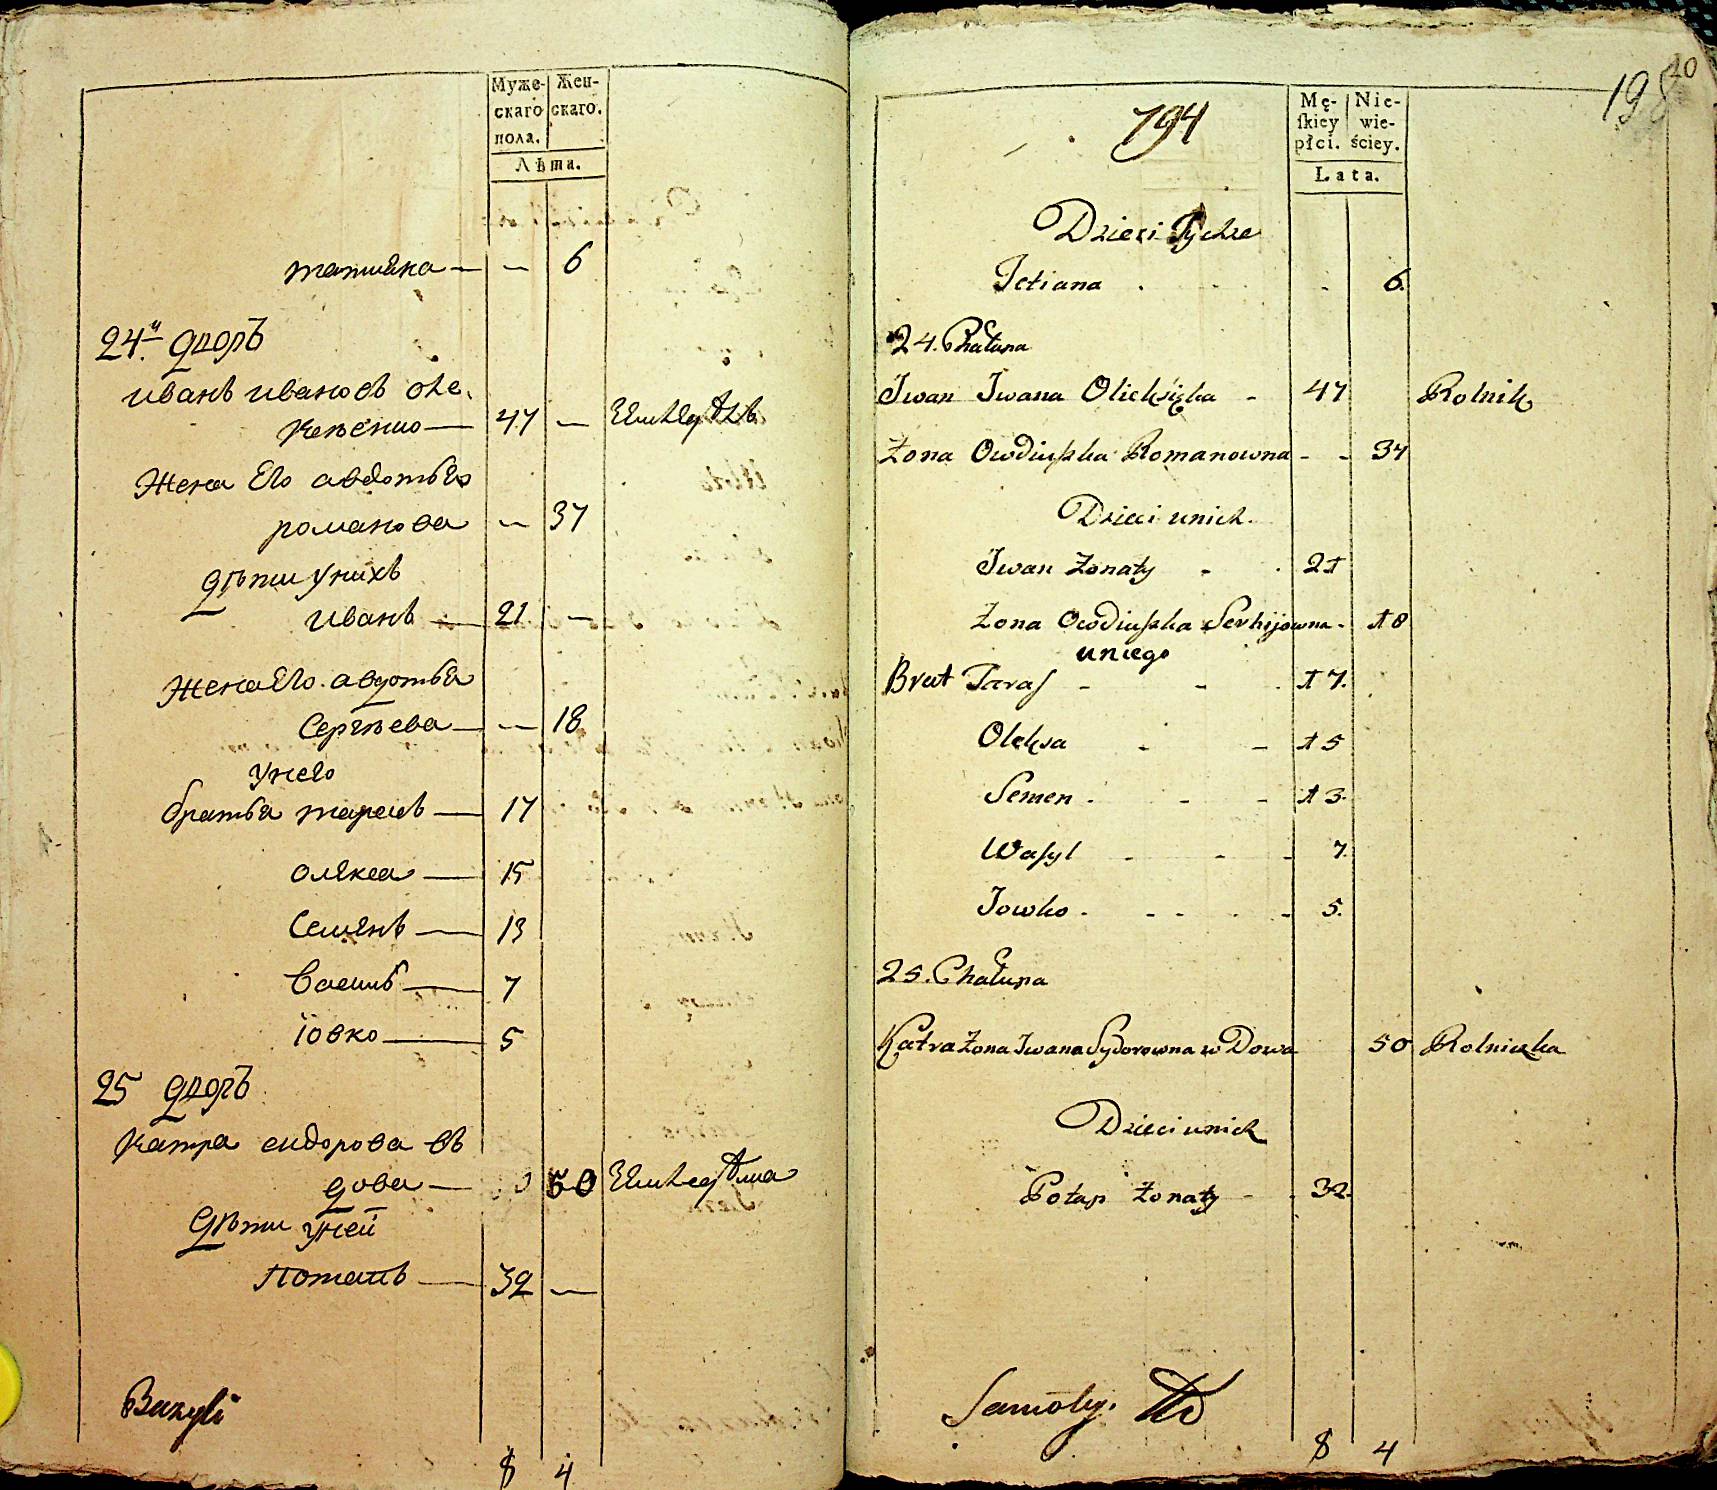 Муже- Жен-
скаго скаго.
пола.
Лѣта.
татияна — — 6
24й дворъ
иванъ ивановъ оле
47 —
Жена Его авдотья
романова — 37
дѣти унихъ
иванъ — 21 —
Жена Его авдотья
Сергѣева — — 18
унего
братья тарасъ — 17
олекса — 15
Семенъ — 13
Василь — 7
іовко — 5
25 дворъ
Катра сидорова въ
дова — 50
дѣти уней
Потапъ — 32 —
Bazyli
8 4
198
20
794
Mę- Nie-
ſkiey wie-
płci. ściey.
Lata.
Dzieci Tychże
Tetiana 6.
24. Chałupa
Iwan Iwana 47 Rolnik
Żona Owdiuszka Romanowna - - 37
Dzieci unich.
Iwan Żonaty - 21
Żona Owdiuszka Serhijowna - 18
uniego
Brat Taraſ - - 17.
Oleksa - - 15
Semen - - - 13.
Waſyl - - - 7.
Iowko - - - - 5.
25. Chałupa
Katra Żona Iwana Sydorowna w Dowa 50 Rolniczka
Dzieci unich
Potap Żonaty - 32.
Samoty.
8 4